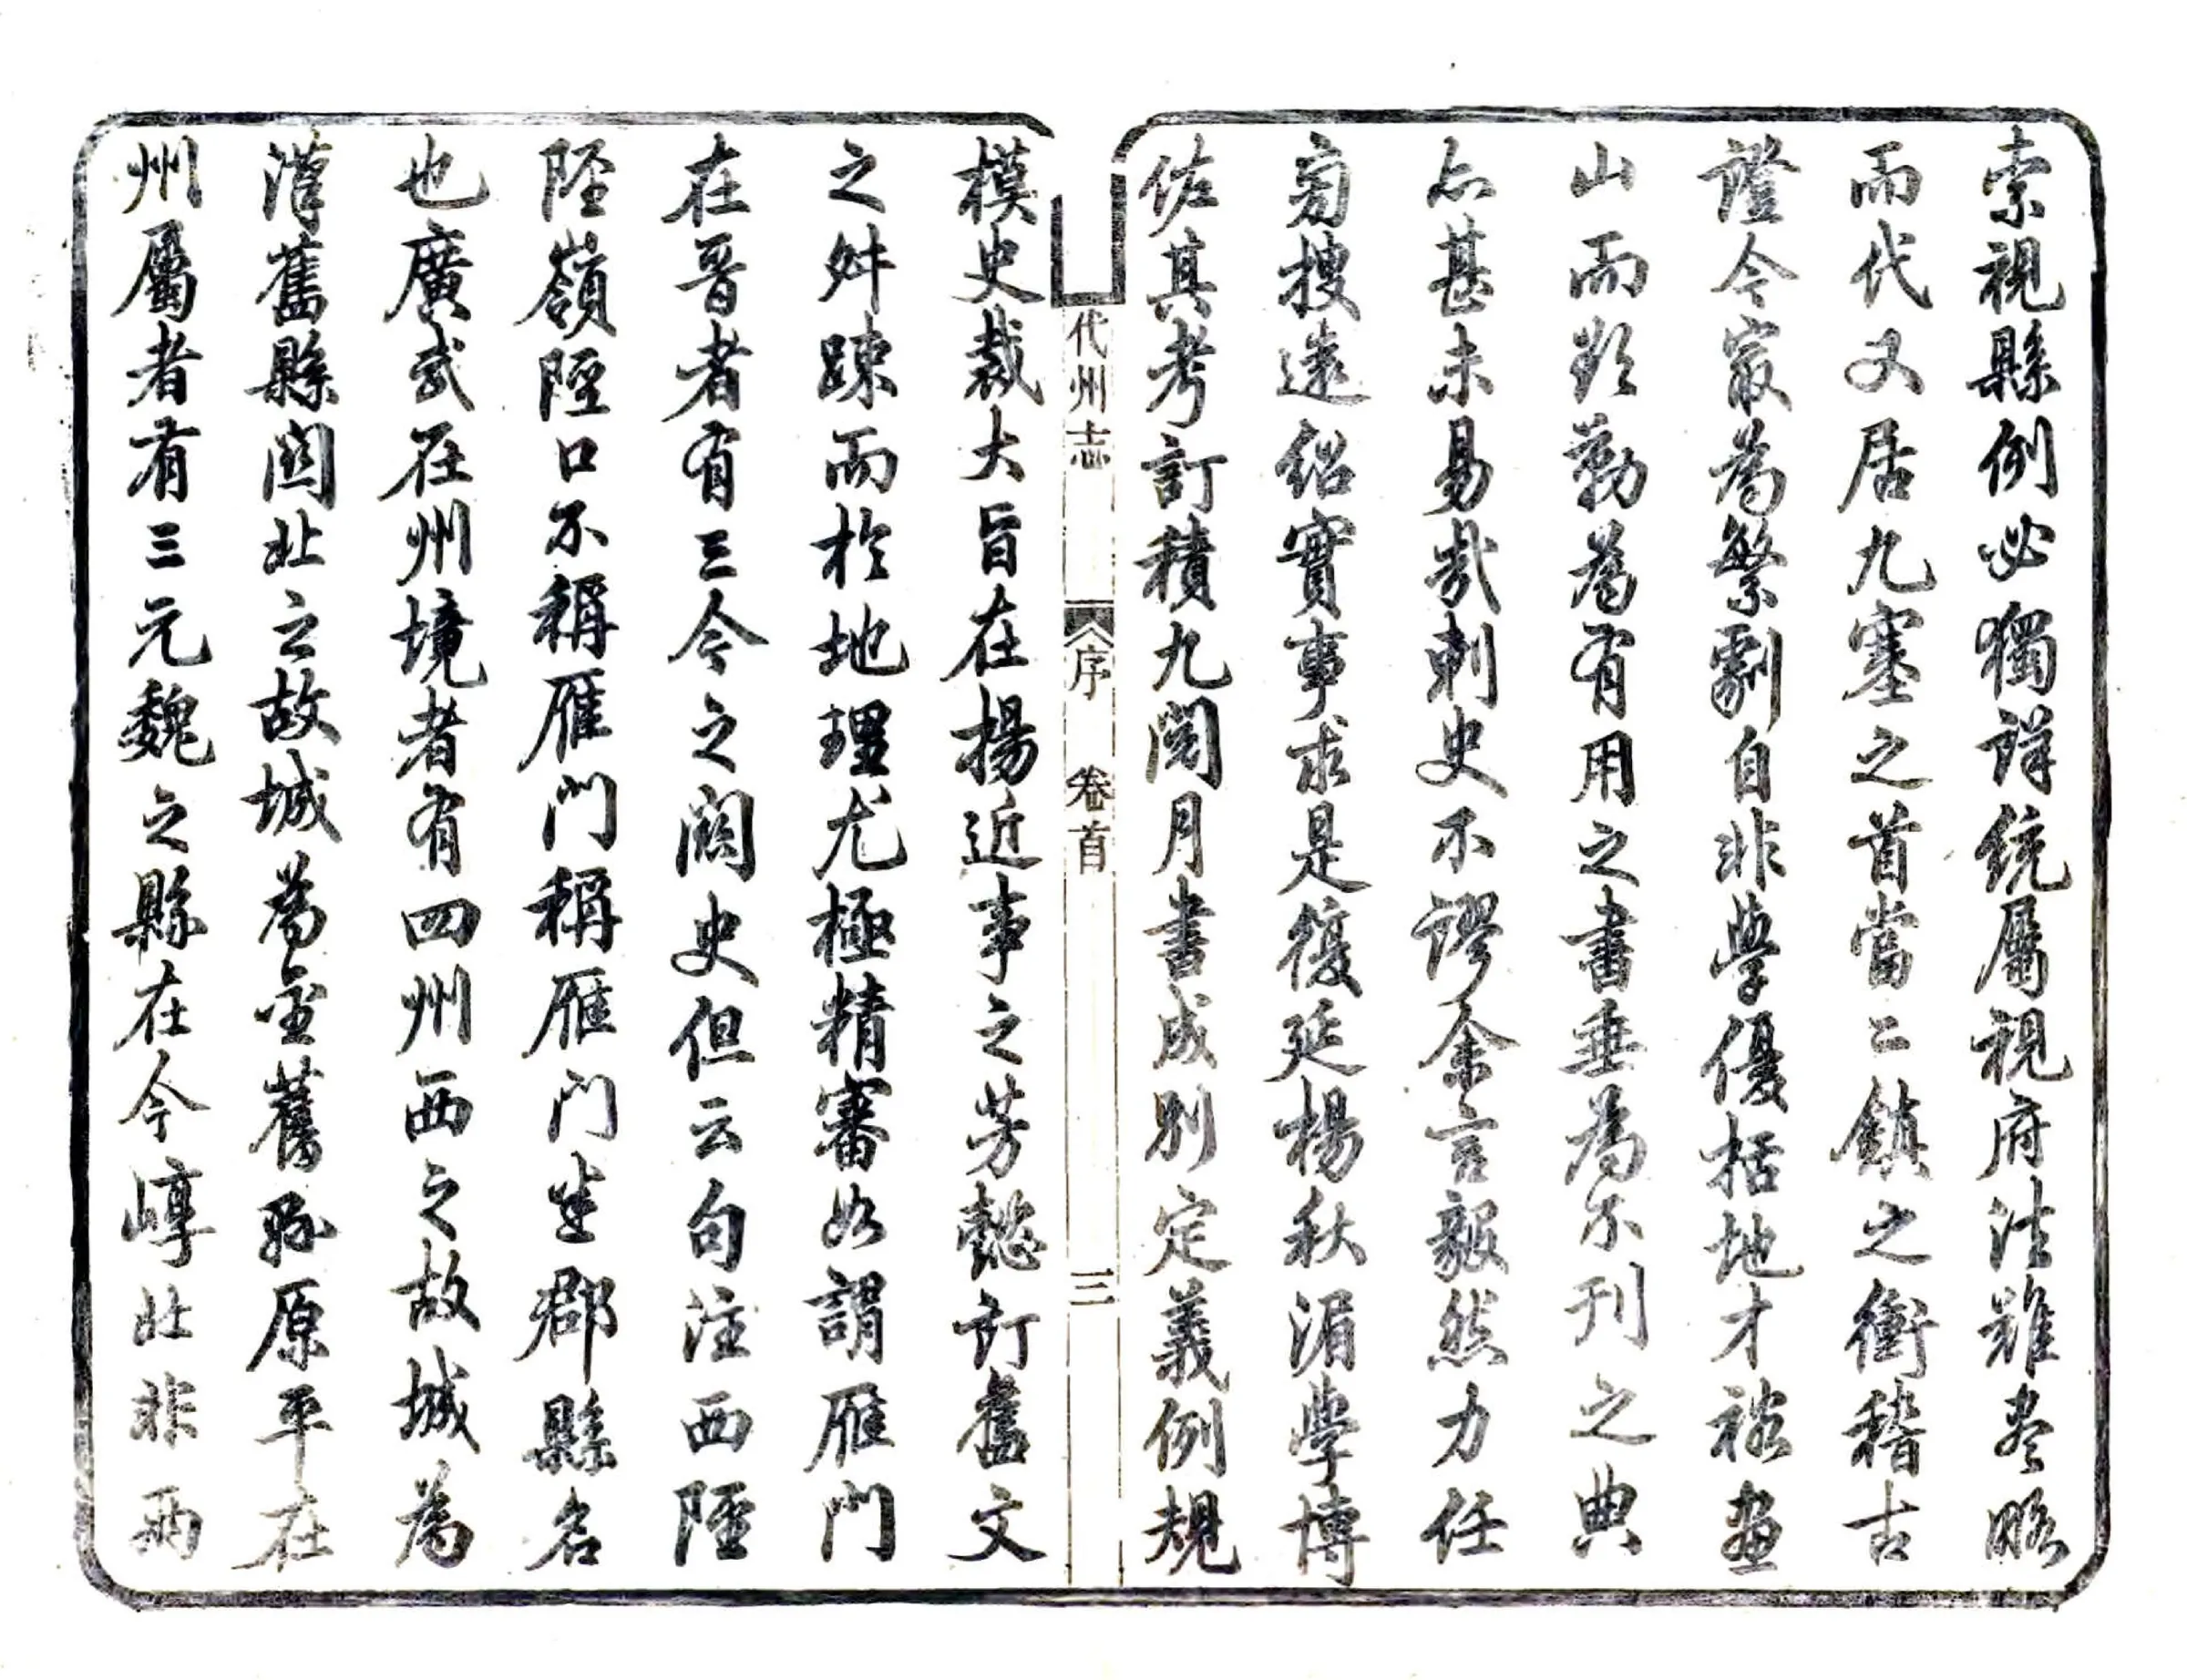 索視縣例必獨詳統屬視府法難盡略
而代又居九塞之首當二鎮之衝稽古
證今寂為繁劇自非學優括地才裕畫
山而欲勒為有用之書垂為不刊之典
亦甚未易哉刺史不謬余言毅然力任
旁搜遠紹實事求是復延楊秋湄學博
佐其考訂積九閱月書成別定義例規
代州志
序
卷首
三
模史裁大旨在揚近事之芳懿訂舊文
之舛踈而於地理尤極精審如謂雁門
在晉者有三今之關史但云句注西陘
陘嶺陘口不稱雁門稱雁門坐郡縣名
也廣武在州境者有四州西之故城為
漢舊縣関北之故城為金舊縣原平在
州屬者有三元魏之縣在今崞北非兩